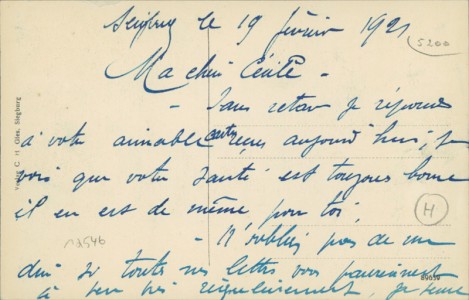 Siegburg le 19 février 1921
5200
Ma chère Cécile -
- Sans retard je réponds
à votre aimable carte reçue aujourd'hui, je
vois que votre santé est toujours bonne
il en est de même pour toi,
H
- N'oublie pas de me
dire si toutes mes lettres vous parviennent
à peu près régulièrement, je
Verlag C. H. Siegburg